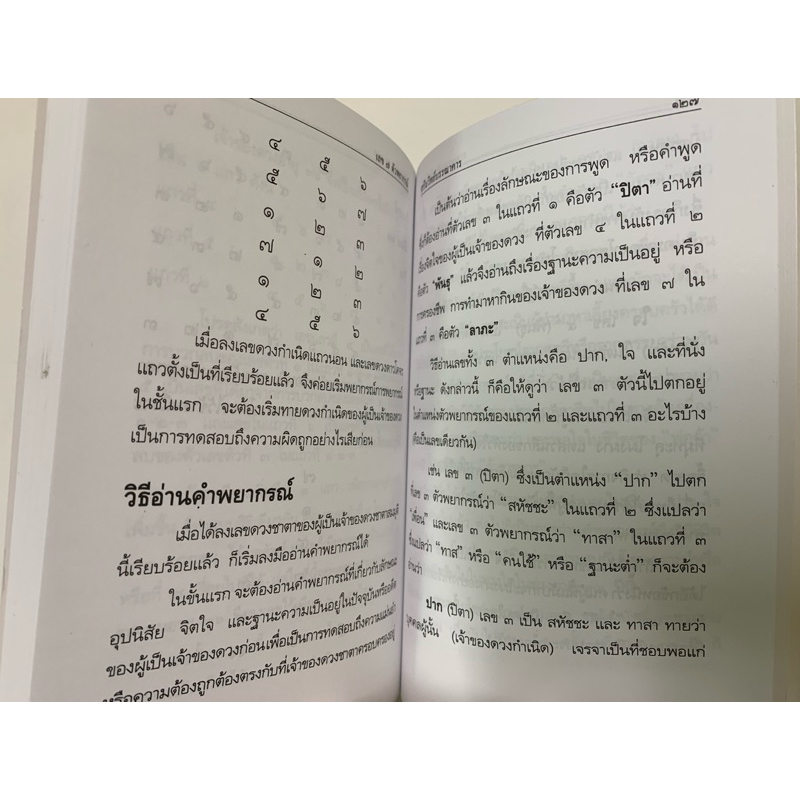 เลข ๗ ตัว
๔ ๕ ๖
๕ ๖ ๗
๑ ๒ ๓
๗ ๑ ๒
๑ ๒ ๓
๔ ๕ ๖
เมื่อลงเลขดวงกำเนิดแถวนอน และเลขดวง
แถวตั้งเป็นที่เรียบร้อยแล้ว จึงค่อยเริ่มพยากรณ์การพยากรณ์
ในชั้นแรก จะต้องเริ่มทายดวงกำเนิดของผู้เป็นเจ้าของดวง
เป็นการทดสอบถึงความผิดถูกอย่างไรเสียก่อน
วิธีอ่านคำพยากรณ์
เมื่อได้ลงเลขดวงชาตาของผู้เป็นเจ้าของดวงชาตาสมมุติ
นี้เรียบร้อยแล้ว ก็เริ่มลงมืออ่านคำพยากรณ์ได้
ในขั้นแรก จะต้องอ่านคำพยากรณ์ที่เกี่ยวกับลักษณะ
อุปนิสัย จิตใจ และฐานะความเป็นอยู่ในปัจจุบันหรืออดีต
ของผู้เป็นเจ้าของดวงก่อนเพื่อเป็นการทดสอบถึงความแม่นยำ
หรือความต้องถูกต้องตรงกับที่เจ้าของดวงชาตาครอบครองอยู่
๑๒๗
เป็นต้นว่าอ่านเรื่องลักษณะของการพูด หรือคำพูด
ซึ่งก็ต้องอ่านที่ตัวเลข ๓ ในแถวที่ ๑ คือตัว “ปิตา” อ่านที่
เรื่องจิตใจของผู้เป็นเจ้าของดวง ที่ตัวเลข ๔ ในแถวที่ ๒
คือตัว “พันธุ” แล้วจึงอ่านถึงเรื่องฐานะความเป็นอยู่ หรือ
การครองชีพ การทำมาหากินของเจ้าของดวง ที่เลข ๗ ใน
แถวที่ ๓ คือตัว “ลาภะ”
วิธีอ่านเลขทั้ง ๓ ตำแหน่งคือ ปาก, ใจ และที่นั่ง
หรือฐานะ ดังกล่าวนี้ ก็คือให้ดูว่า เลข ๓ ตัวนี้ไปตกอยู่
ในตำแหน่งตัวพยากรณ์ของแถวที่ ๒ และแถวที่ ๓ อะไรบ้าง
(คือเป็นเลขเดียวกัน)
เช่น เลข ๓ (ปิตา) ซึ่งเป็นตำแหน่ง “ปาก” ไปตก
ที่เลข ๓ ตัวพยากรณ์ว่า “สหัชชะ” ในแถวที่ ๒ ซึ่งแปลว่า
“เพื่อน” และเลข ๓ ตัวพยากรณ์ว่า “ทาสา” ในแถวที่ ๓
ซึ่งแปลว่า “ทาส” หรือ “คนใช้” หรือ “ฐานะต่ำ” ก็จะต้อง
อ่านว่า
ปาก (ปิตา) เลข ๓ เป็น สหัชชะ และ ทาสา ทายว่า
บุคคลผู้นั้น (เจ้าของดวงกำเนิด) เจรจาเป็นที่ชอบพอแก่